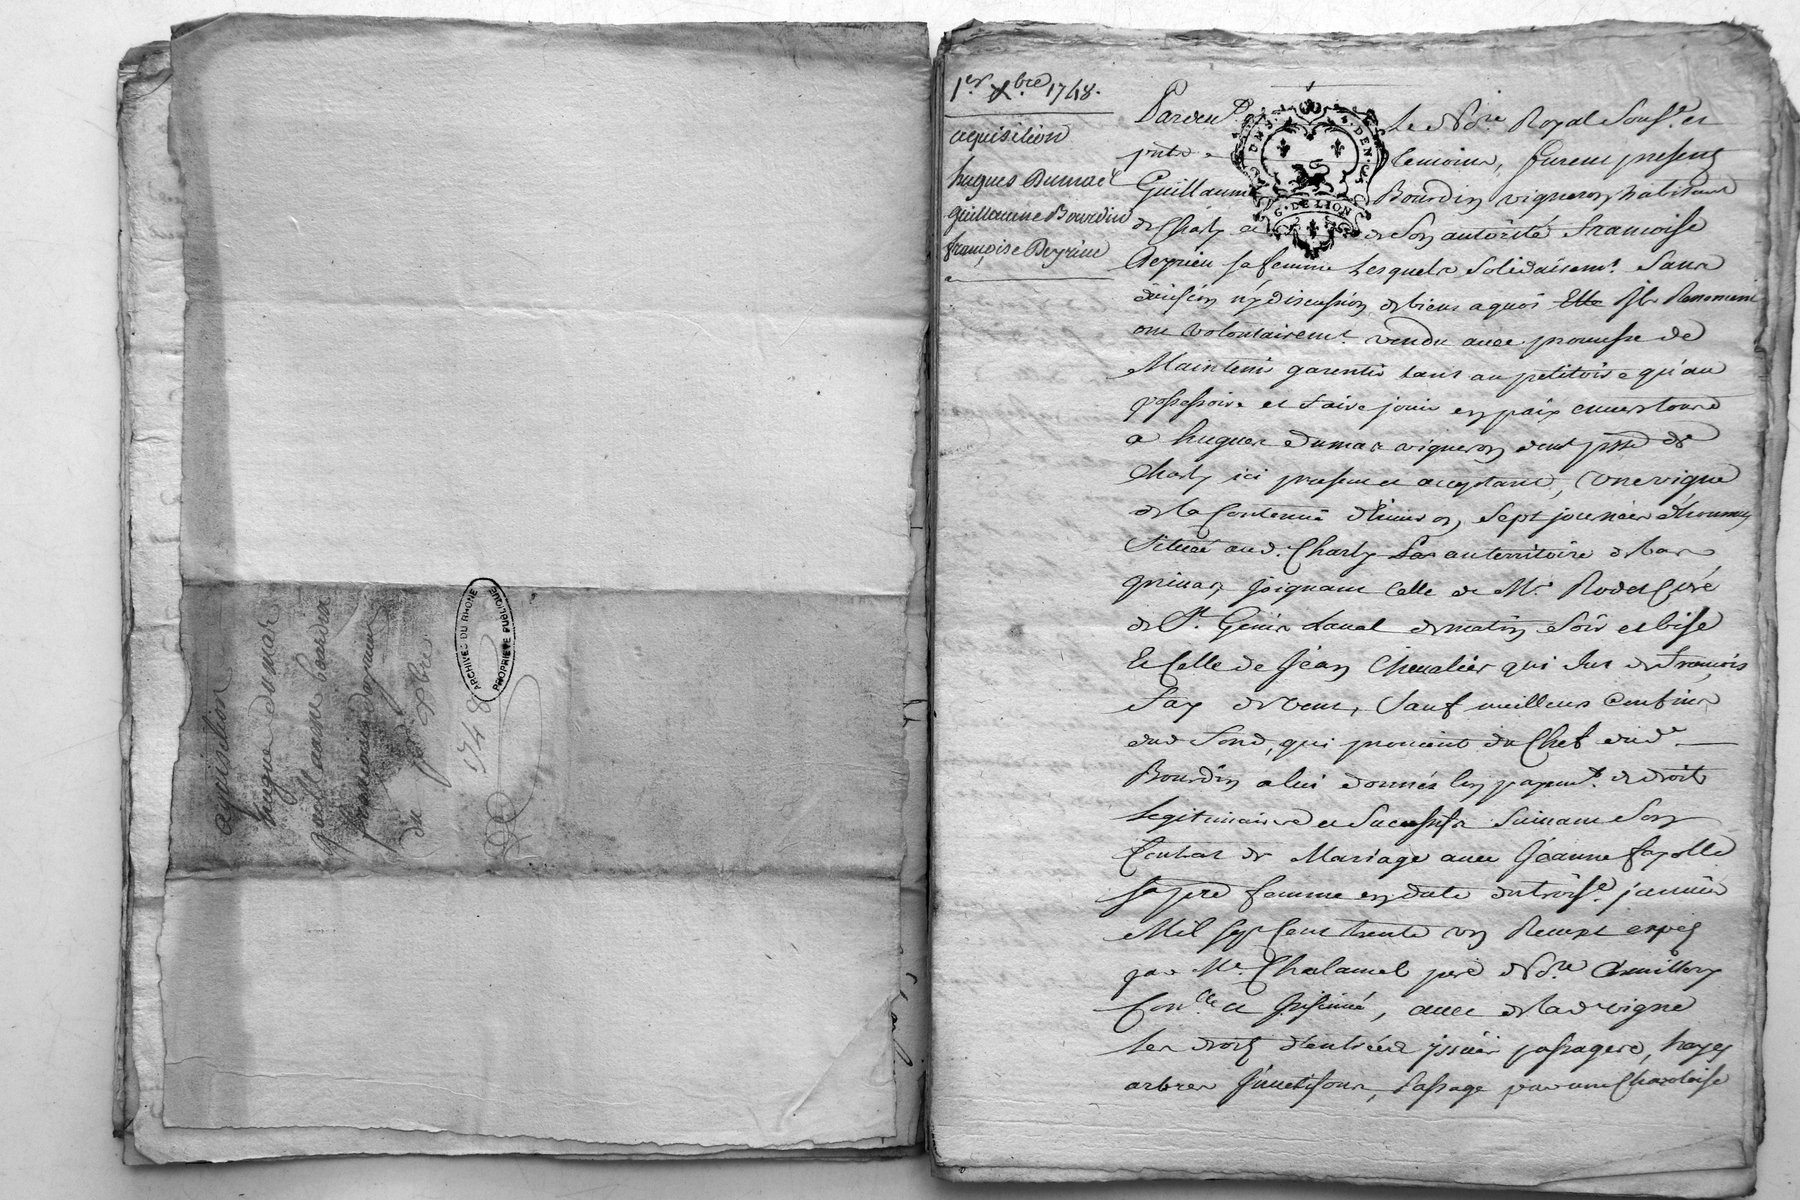 aquisition
hugue dumar
guillaume bourdin
francoise dayrieux
du 1er xbre
1748
ARCHIVES DU RHONE
PROPRIÉTÉ PUBLIQUE
1er xbre 1748.
acquisition
hugues Dumae
guillaume Bourdin
françoise Deyrieu
Pardevt. le Nore. Royal Sousé. et
pnts temoins, furent presents
Guillaume Bourdin vigneron habitant
de Charly et de son autorité francoise
Deyrieu sa femme Lesquels solidairemt. Sans
division ny discussion de biens a quoi Elle ils Renoncent
ont volontairemt. vendu avec promesse de
Maintenir garentir tant au petitoire qu'au
possessoire et faire jouir en paix envers tous
a hugues dumas vigneron dud psse de
Charly ici present et acceptant, Une vigne
de la Contenue d'environ sept journées d'hommes
Situeé aud. Charly Las au territoire de las
joignant Celle de Mr. Rodet Curé
de St. Genis Laval de matin Soir et bise
Et Celle de Jean Chevalier qui fut de francois
Fay de vent, Sauf meilleurs Confins
dud fond, qui provient du Chef dud.
Bourdin a lui donnés en payemt. de droits
legitimaires et Successifs Suivant Son
Contrat de Mariage avec Jeanne fayolle
sa pre femme en date du troise. janvier
Mil sept Cent trente un Receut et expés
par Me. Chalamel pere Nore. a Millery
Conlle et Insinué, avec de lad vigne
les droits d'entrées issües passages, hayes
arbres fruits fonds, Passage par une Charoloise
G. DE LION